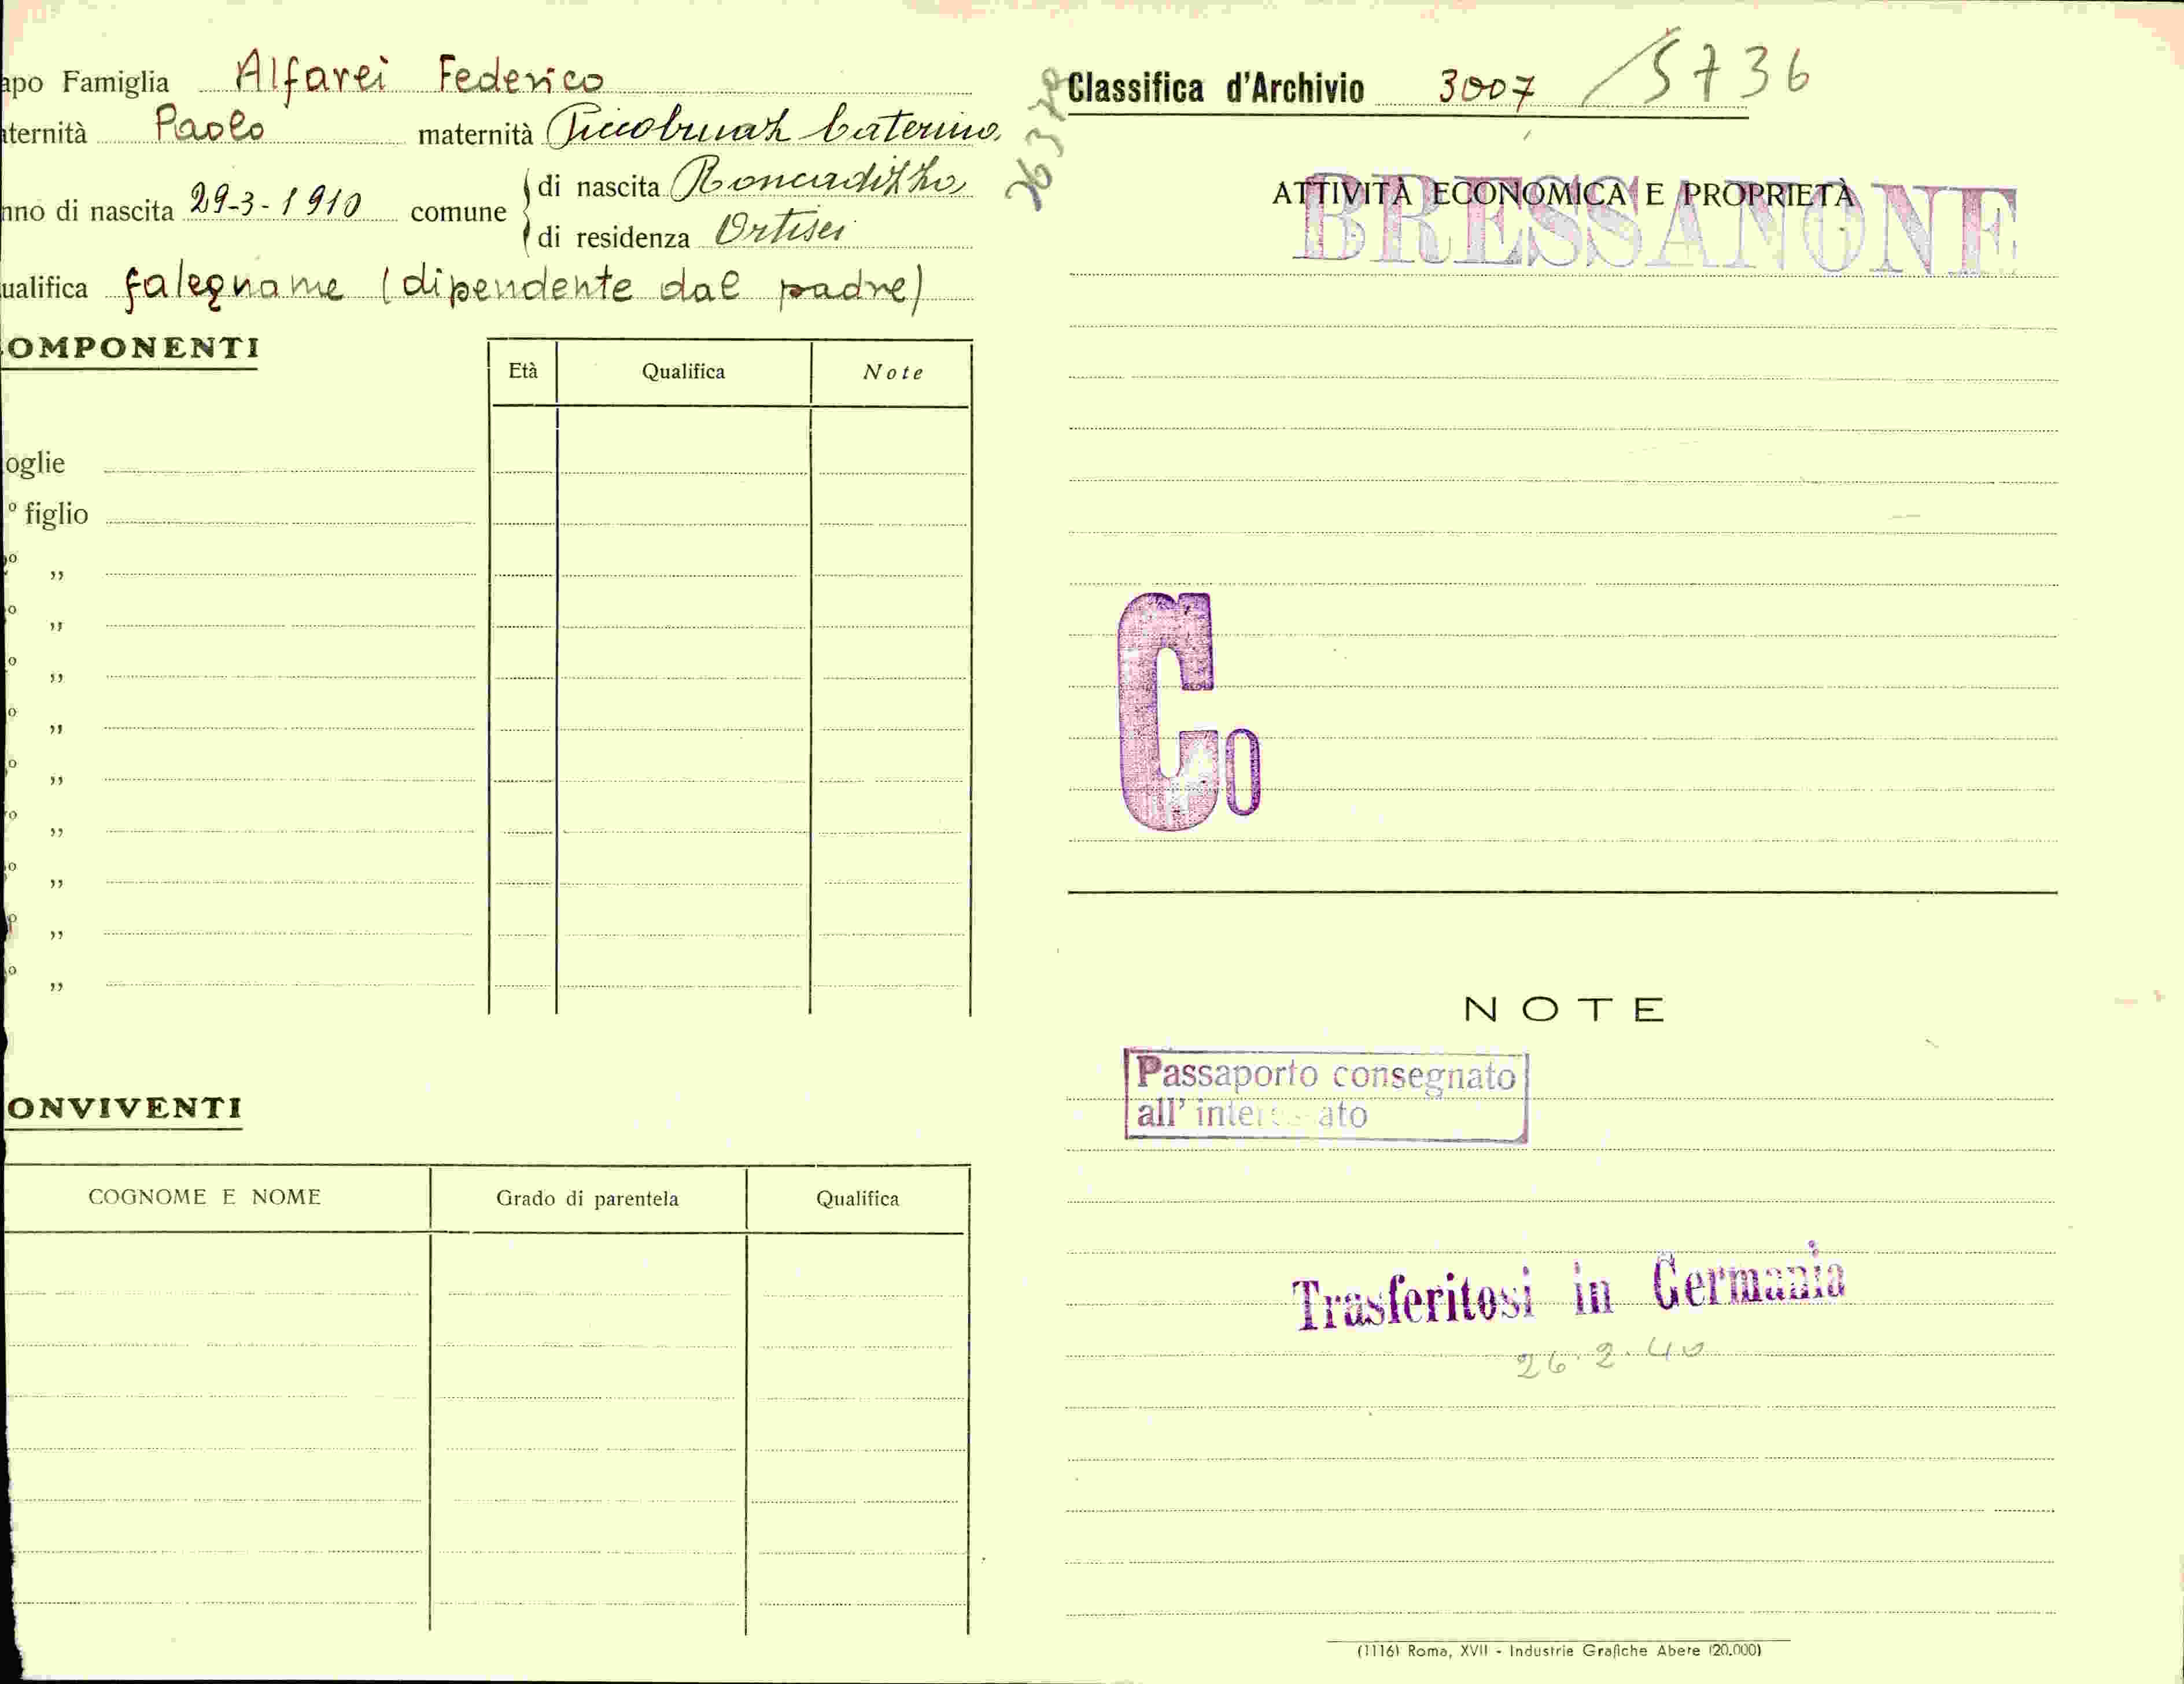 apo Famiglia Alfarei Federico
ternità Paolo maternità Caterina
nno di nascita 29-3-1910 comune
di nascita Roncadizza
di residenza Ortisei
ualifica falegname (dipendente dal padre)
OMPONENTI
Età Qualifica Note
oglie
º figlio
º „
º „
º „
º „
º „
º „
º „
º „
º „
ONVIVENTI
COGNOME E NOME Grado di parentela Qualifica
Classifica d'Archivio 3007 /5736
ATTIVITÀ ECONOMICA E PROPRIETÀ
BRESSANONE
Co
NOTE
Passaporto consegnato
all'
Trasferitosi in Germania
26.2.40
(1116) Roma, XVII - Industrie Grafiche Abete (20.000)